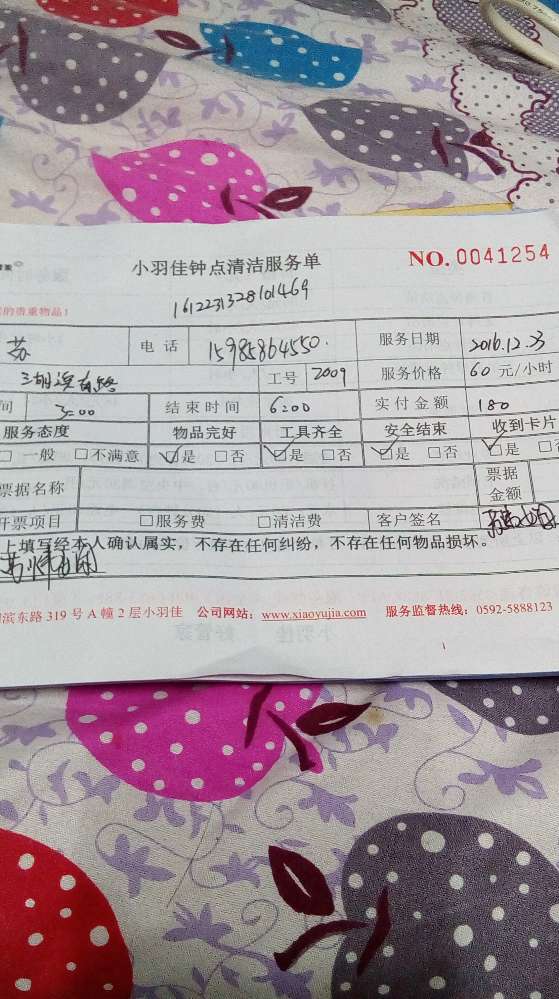 小羽佳钟点清洁服务单 NO. 0041254
1612231328101469
的贵重物品!
苏 电话 15985864550. 服务日期 2016.12.23
工号 2009 服务价格 60 元/小时
间 3:00 结束时间 6:00 实付金额 180
服务态度 物品完好 工具齐全 安全结束 收到卡片
□一般 □不满意 ☑是 □否 ☑是 □否 ☑是 □否 ☑是 □否
票据名称 票据金额
开票项目 □服务费 □清洁费 客户签名
上填写经本人确认属实,不存在任何纠纷,不存在任何物品损坏。
滨东路 319 号 A 幢 2 层小羽佳 公司网站:www.xiaoyujia.com 服务监督热线:0592-5888123
1